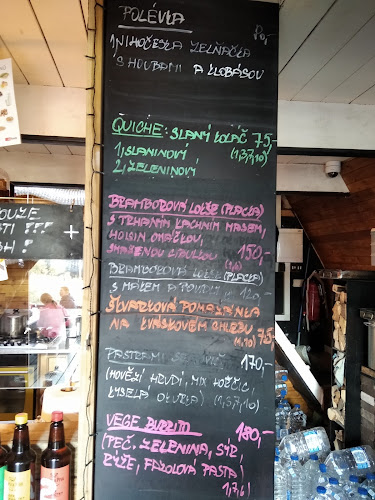 POLÉVKA
JIHOČESKÁ ZELŇAČKA
S HOUBAMI A KLOBÁSOU
QUICHE: SLANÝ KOLÁČ 75,-
1) SLANINOVÝ (1,3,7,10)
2) ZELENINOVÝ
BRAMBOROVÁ LOKŠE (PLACKA)
S TRHANÝM KACHNÍM MASEM,
HOISIN OMÁČKOU,
SMAŽENOU CIBULKOU 150,-
BRAMBOROVÁ LOKŠE (PLACKA)
S MÁKEM A
ŠKVARKOVÁ POMAZÁNKA
NA KVÁSKOVÉM CHLEBU 75,-
PASTRAMI 170,-
(HOVĚZÍ HRUDÍ, MIX HOŘČIC,
KYSELÁ OKURKA) (1,3,7,10)
VEGE BURRITO 180,-
(PEČ. ZELENINA, SÝR
RÝŽE, FAZOLOVÁ PASTA)
OUZE
STI !!! +